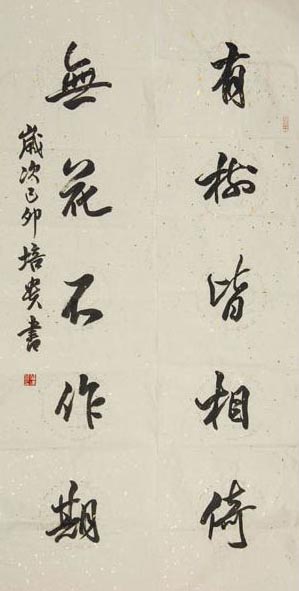 有樹皆相倚
無花不作期
歲次己卯培贵書